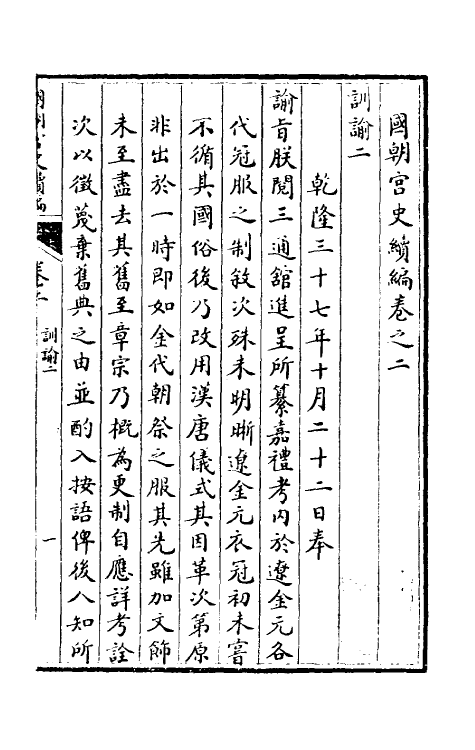 國朝宮史續編卷之二
訓諭二
乾隆三十七年十月二十二日奉
諭旨朕閱三通舘進呈所纂嘉禮考内於遼金元各
代冠服之制敘次殊未明晰遼金元衣冠初未嘗
不循其國俗後乃改用漢唐儀式其因革次第原
非出於一時即如金代朝祭之服其先雖加文飾
未至盡去其舊至章宗乃概為更制自應詳考詮
次以徵蔑棄舊典之由並酌入按語俾後人知所
國朝宮史續編
卷二
訓諭二
一